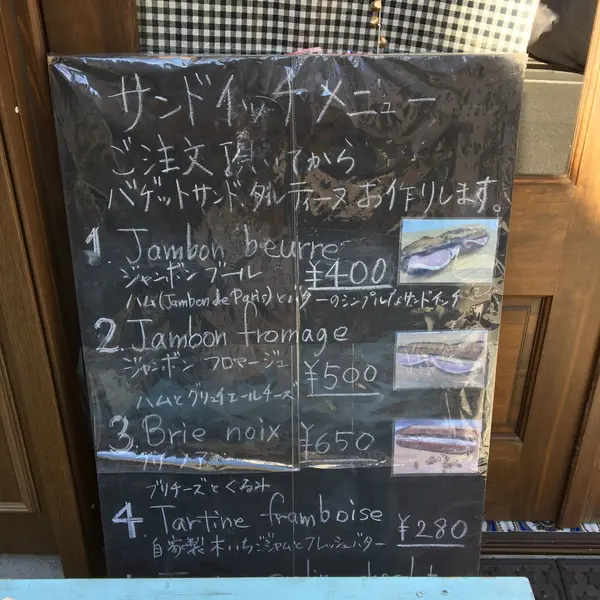 サンドイッチメニュー
ご注文頂いてから
バゲットサンド、タルティーヌお作りします。
1. Jambon beurre
ジャンボンブール ¥400
ハム(Jambon de Paris)とバターのシンプルなサンドイッチ
2. Jambon fromage
ジャンボン フロマージュ ¥500
ハムとグリュイエールチーズ
3. Brie noix ¥650
ブリーノア
ブリチーズとくるみ
4. Tartine framboise ¥280
自家製木いちごジャムとフレッシュバター